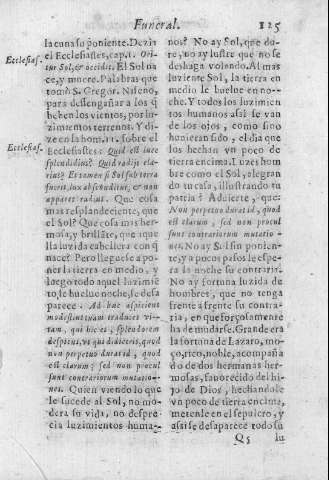 Funeral. 125
Ecclesias.
Ecclesias.
la cuna su poniente. Dezia
el Ecclesiastes, cap. 1. Ori-
tur Sol, & occidit. El Sol na-
ce, y muere. Palabras que
tomò S. Gregor. Niseno,
para desengañar a los q̃
beben los vientos, por luzi-
mientos terrenos. Y di-
ze en la hom. 11. sobre el
Ecclesiastes: Quid est luce
splendidius? Quid radijs cla-
rius? Et tamen si Sol sub terra
fuerit, lux absconditur, & non
apparet radius. Que cosa
mas resplandeciente, que
el Sol? Que cosa mas her-
mosa, y brillãte, que aque
lla luzida cabellera con q̃
nace? Pero llegue se a po-
ner la tierra en medio, y
luego todo aquel luzimiẽ-
to, se buelue noche, se desa
parece: Ad hæc aspiciens
modestius tuam traduces vi-
tam, qui hic es, splendorem
despicias, vs qui didiceris, quod
non perpetuo durat id, quod
est clarum; sed non procul
sunt contrariorum mutatio-
nes. Quien viendo lo que
le sucede al Sol, no mo-
dera su vida, no despre-
cia luzimientos huma-
nos? No ay Sol, que du-
re, no ay lustre que no se
deshaga volando. Al mas
luziente Sol, la tierra en
medio le buelue en no-
che. Y todos los luzimien
tos humanos assi se van
de los ojos, como sino
huuieran sido, el dia que
los hechan vn poco de
tierra encima. Luzes hom
bre como el Sol, alegran
do tu casa, illustrando tu
patria? Aduierte, que:
Non perpetuo durat id, quod
est clarum, sed non procul
sunt contrariorum mutatio-
nes. No ay Sol sin ponien-
te, y a pocos passos le espe-
ra la noche su contraria.
No ay fortuna luzida de
hombres, que no tenga
frente a frente su contra-
ria, en que forçosamente
ha de mudarse. Grande era
la fortuna de Lazaro, mo-
ço, rico, noble, acompaña
do de dos hermanas her-
mosas, fauorecido del hi-
jo de Dios, hechandole
vn poco de tierra encima,
metenle en el sepulcro, y
assi se desaparece todo su
Q5 lu